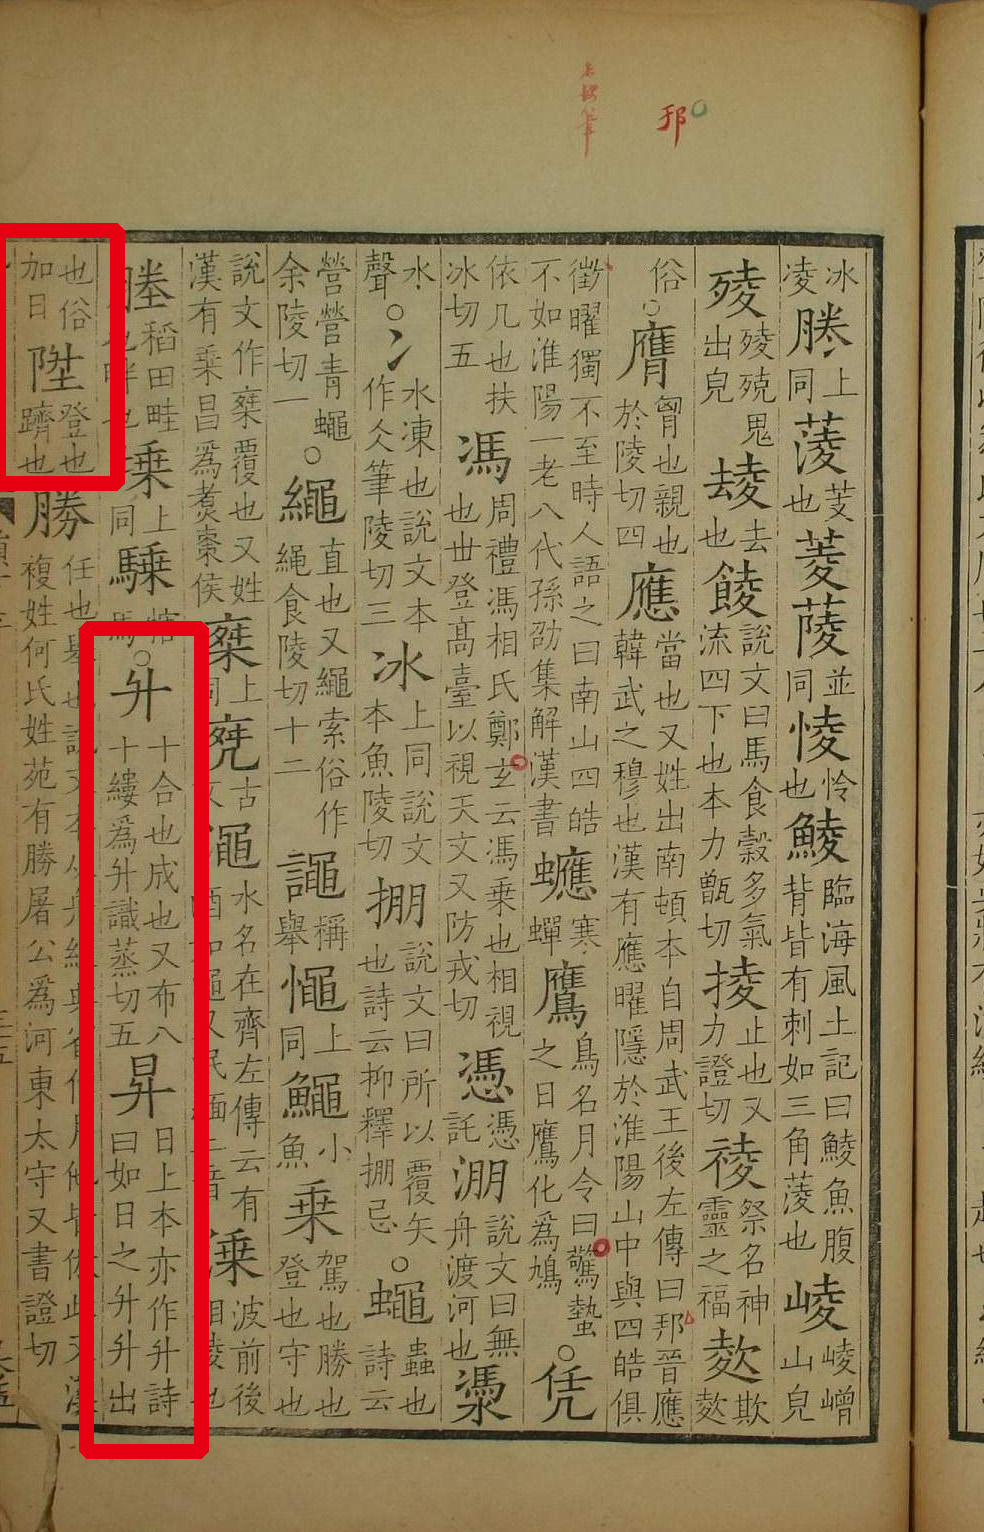 冰凌上同蔆芰也菱䔖並同㥄怜也鯪臨海風土記曰鯪魚腹背皆有刺如三角菱也崚崚嶒山皃
㱥㱥殑鬼出皃去也䬋說文曰馬食穀多氣流四下也本力甑切掕止也又力證切祾祭名神靈之福欺
俗○膺胷也親也於陵切四應當也又姓出南頓本自周武王後左傳曰邦晉應韓武之穆也漢有應曜隱於淮陽山中與四皓俱
徵曜獨不至時人語之曰南山四皓不如淮陽一老八代孫劭集解漢書寒蟬鷹鳥名月令曰驚蟄之日鷹化爲鳩○凭
依几也扶冰切五馮周禮馮相氏鄭玄云馮乗也相視也世登高臺以視天文又防戎切憑憑託淜說文曰無舟渡河也㵗
水聲○冫水凍也說文本作仌筆陵切三冰上同說文本魚陵切掤說文曰所以覆矢也詩云抑釋掤忌○蠅蟲也詩云
營營青蠅余陵切一○繩直也又繩索俗作䋲食陵切十二譝稱舉憴上同鱦小魚乗駕也勝也登也守也
說文作椉覆也又姓漢有乗昌爲煑棗侯椉上同古文澠水名在齊左傳云有酒如澠又泯緬二音溗波前後相陵也
塍稻田畦也畔也上同騬犗馬○升十合也成也又布八十縷爲升識蒸切五昇日上本亦作升詩曰如日之升升出
也俗加日陞登也躋也勝任也舉也說文本从舟經典省作月他皆倣此又漢複姓何氏姓苑有勝屠公爲河東太守又書證切
邦